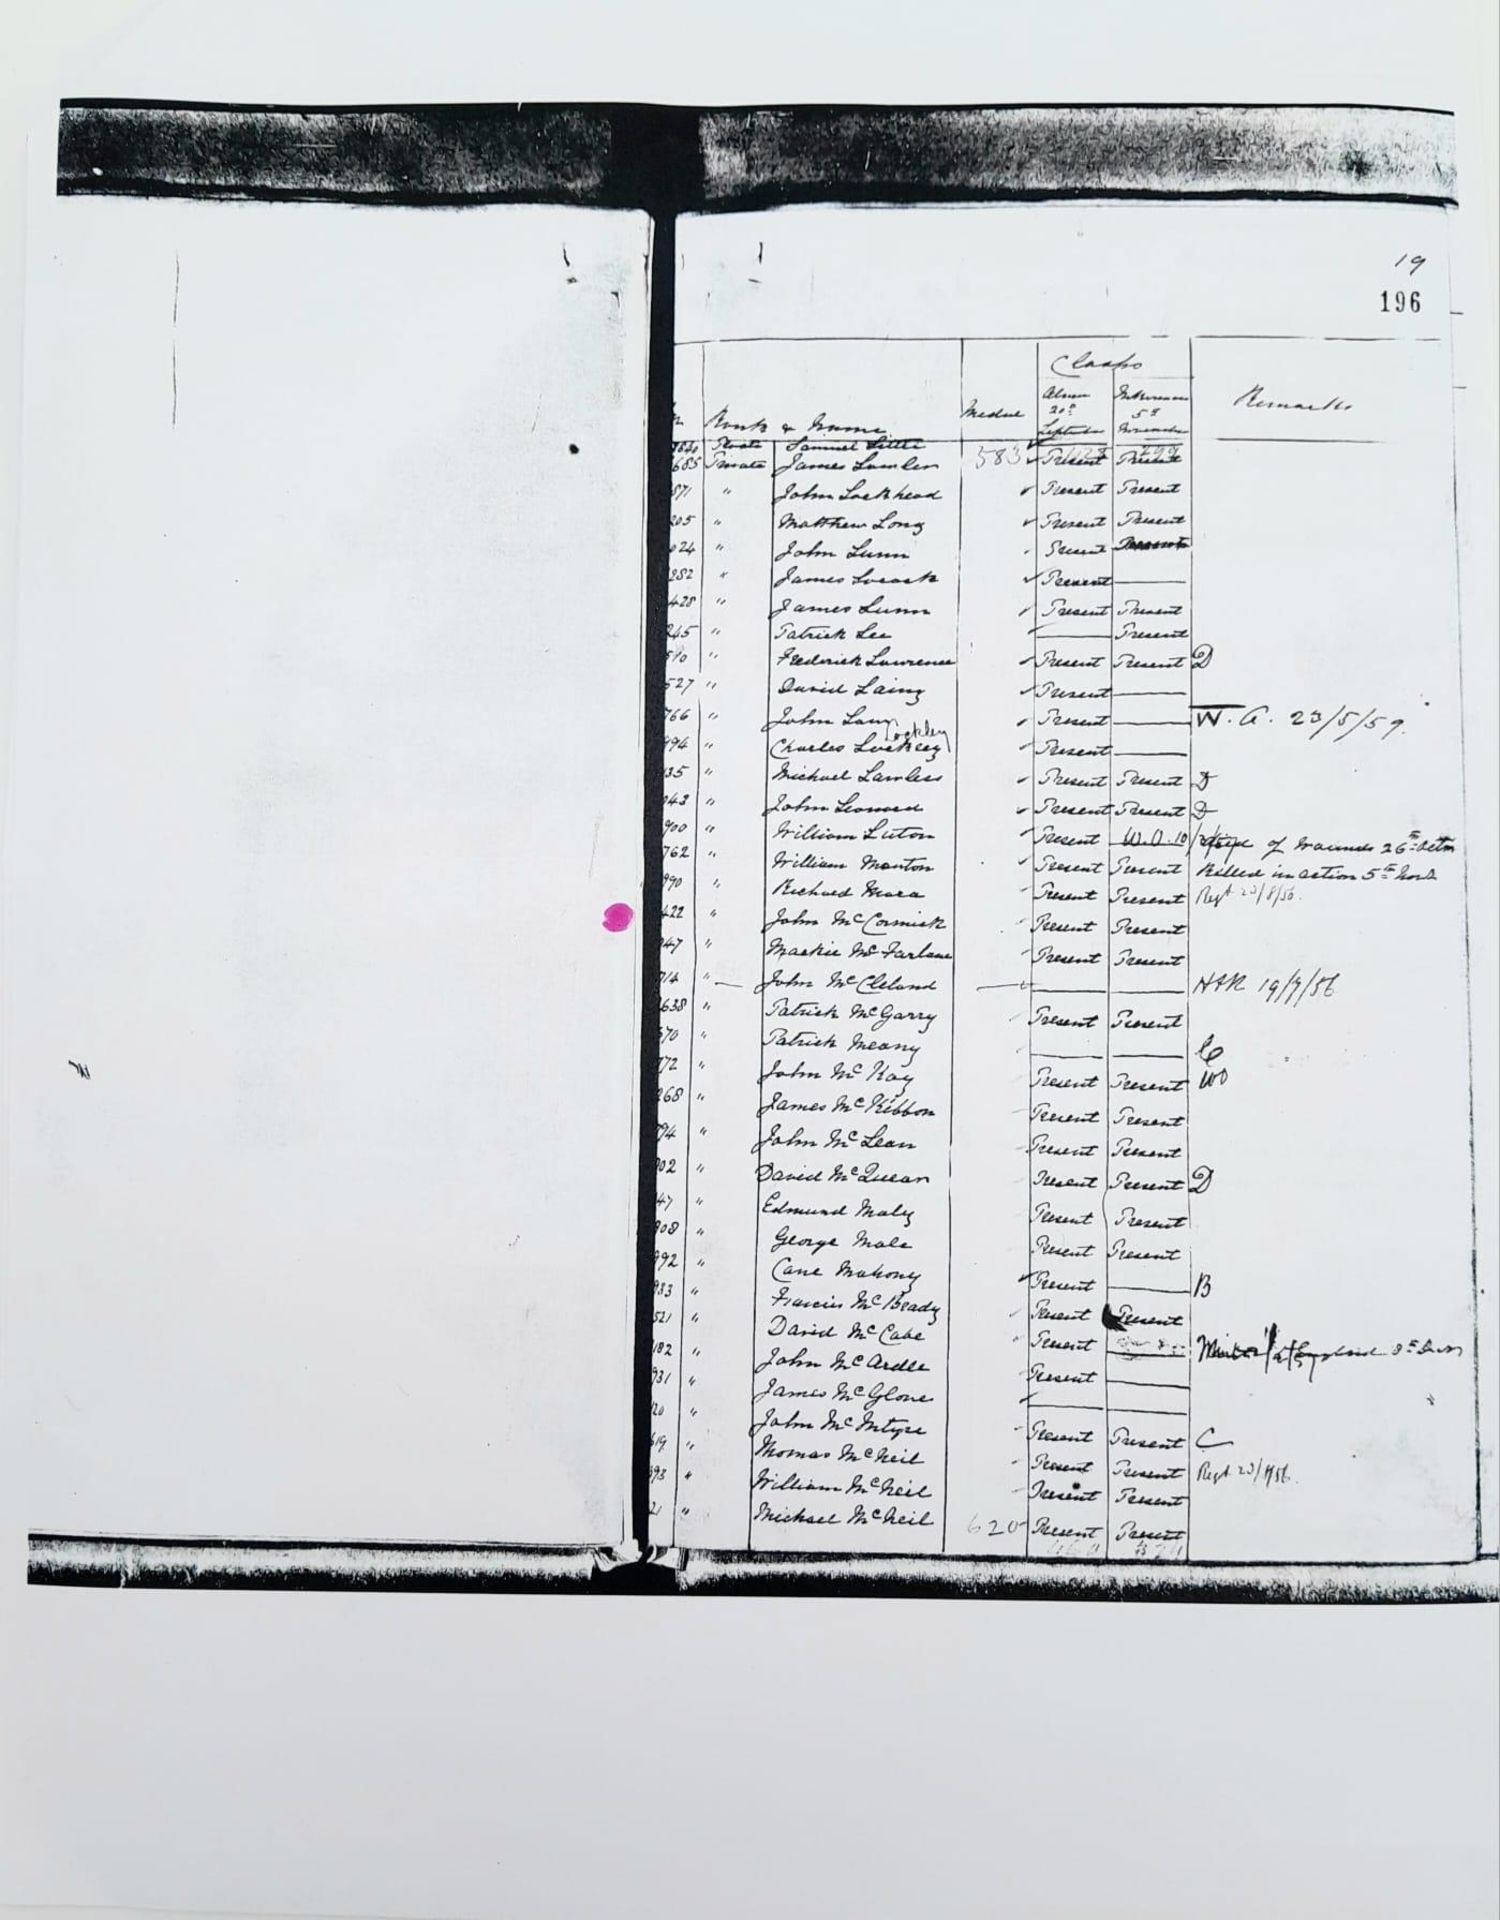 19
196
Clasps
Rank & Name Medal Alma 20th September Inkerman 5th November Remarks
Private Samuel Little
685 Private James Lawler 583 Present Present
871 " John Lockhead Present Present
205 " Matthew Long Present Present
024 " John Lunn Present Present
282 " James Present —
428 " James Lunn Present Present
245 " Patrick Lee — Present
" Frederick Lawrence Present Present D
527 " David Laing Present —
766 " John Present — W.O. 23/5/57.
ockley
994 " Charles Present —
35 " Michael Lawless Present Present D
043 " John Leonard Present Present D
900 " William Luton Present W.O. 10/ of wounds 26th
762 " William Manton Present Present Killed in action 5th Novr
990 " Richard Mara Present Present Regt 23/8/56.
422 " John McCormick Present Present
947 " Mackie McFarlane Present Present
714 " — John McCleland — — — 19/9/56
638 " Patrick McGarry Present Present
570 " Patrick Meany — —
772 " John McKay Present Present WO
268 " James McKibbon Present Present
794 " John McLean Present Present
902 " David McQuean Present Present D
47 " Edmund Maly Present Present
308 " George Male Present Present
992 " Cane Mahony Present — B
933 " Francis McBrady Present Present
521 " David McCabe Present
182 " John McArdle Present —
931 " James McGlone — —
20 " John McIntyre Present Present C
619 " Thomas McNeil Present Present Regt
993 " William McNeil Present Present
21 " Michael McNeil 620 Present Present